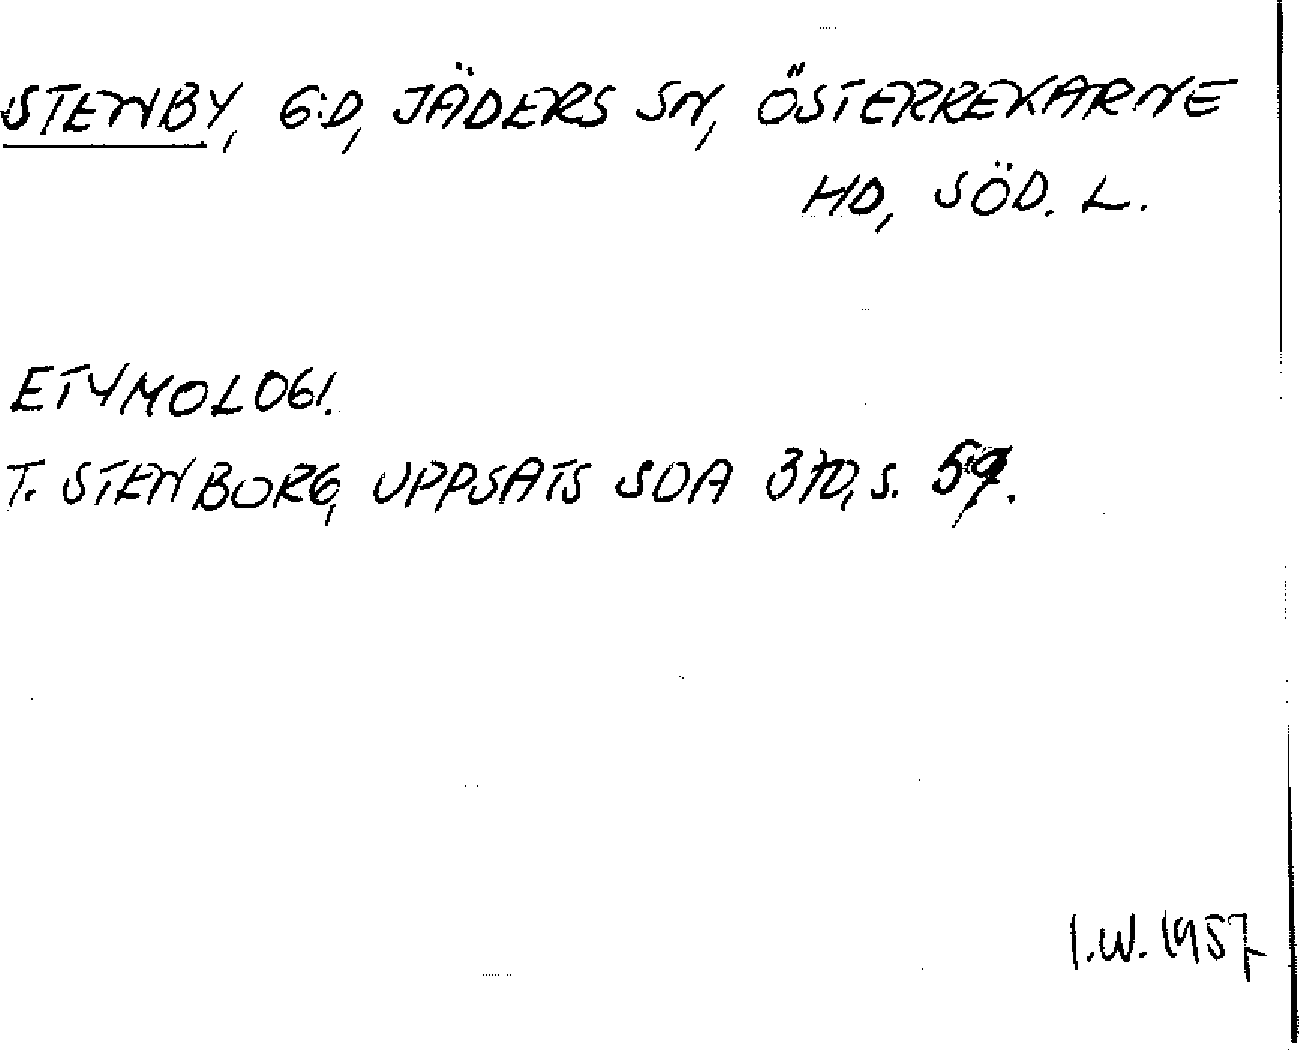 STENBY, G:D, JÄDERS SN, ÖSTERREKARNE
HD, SÖD. L.
ETYMOLOGI.
T. STENBORG, UPPSATS SOA 370, S. 59.
I.W. 1957